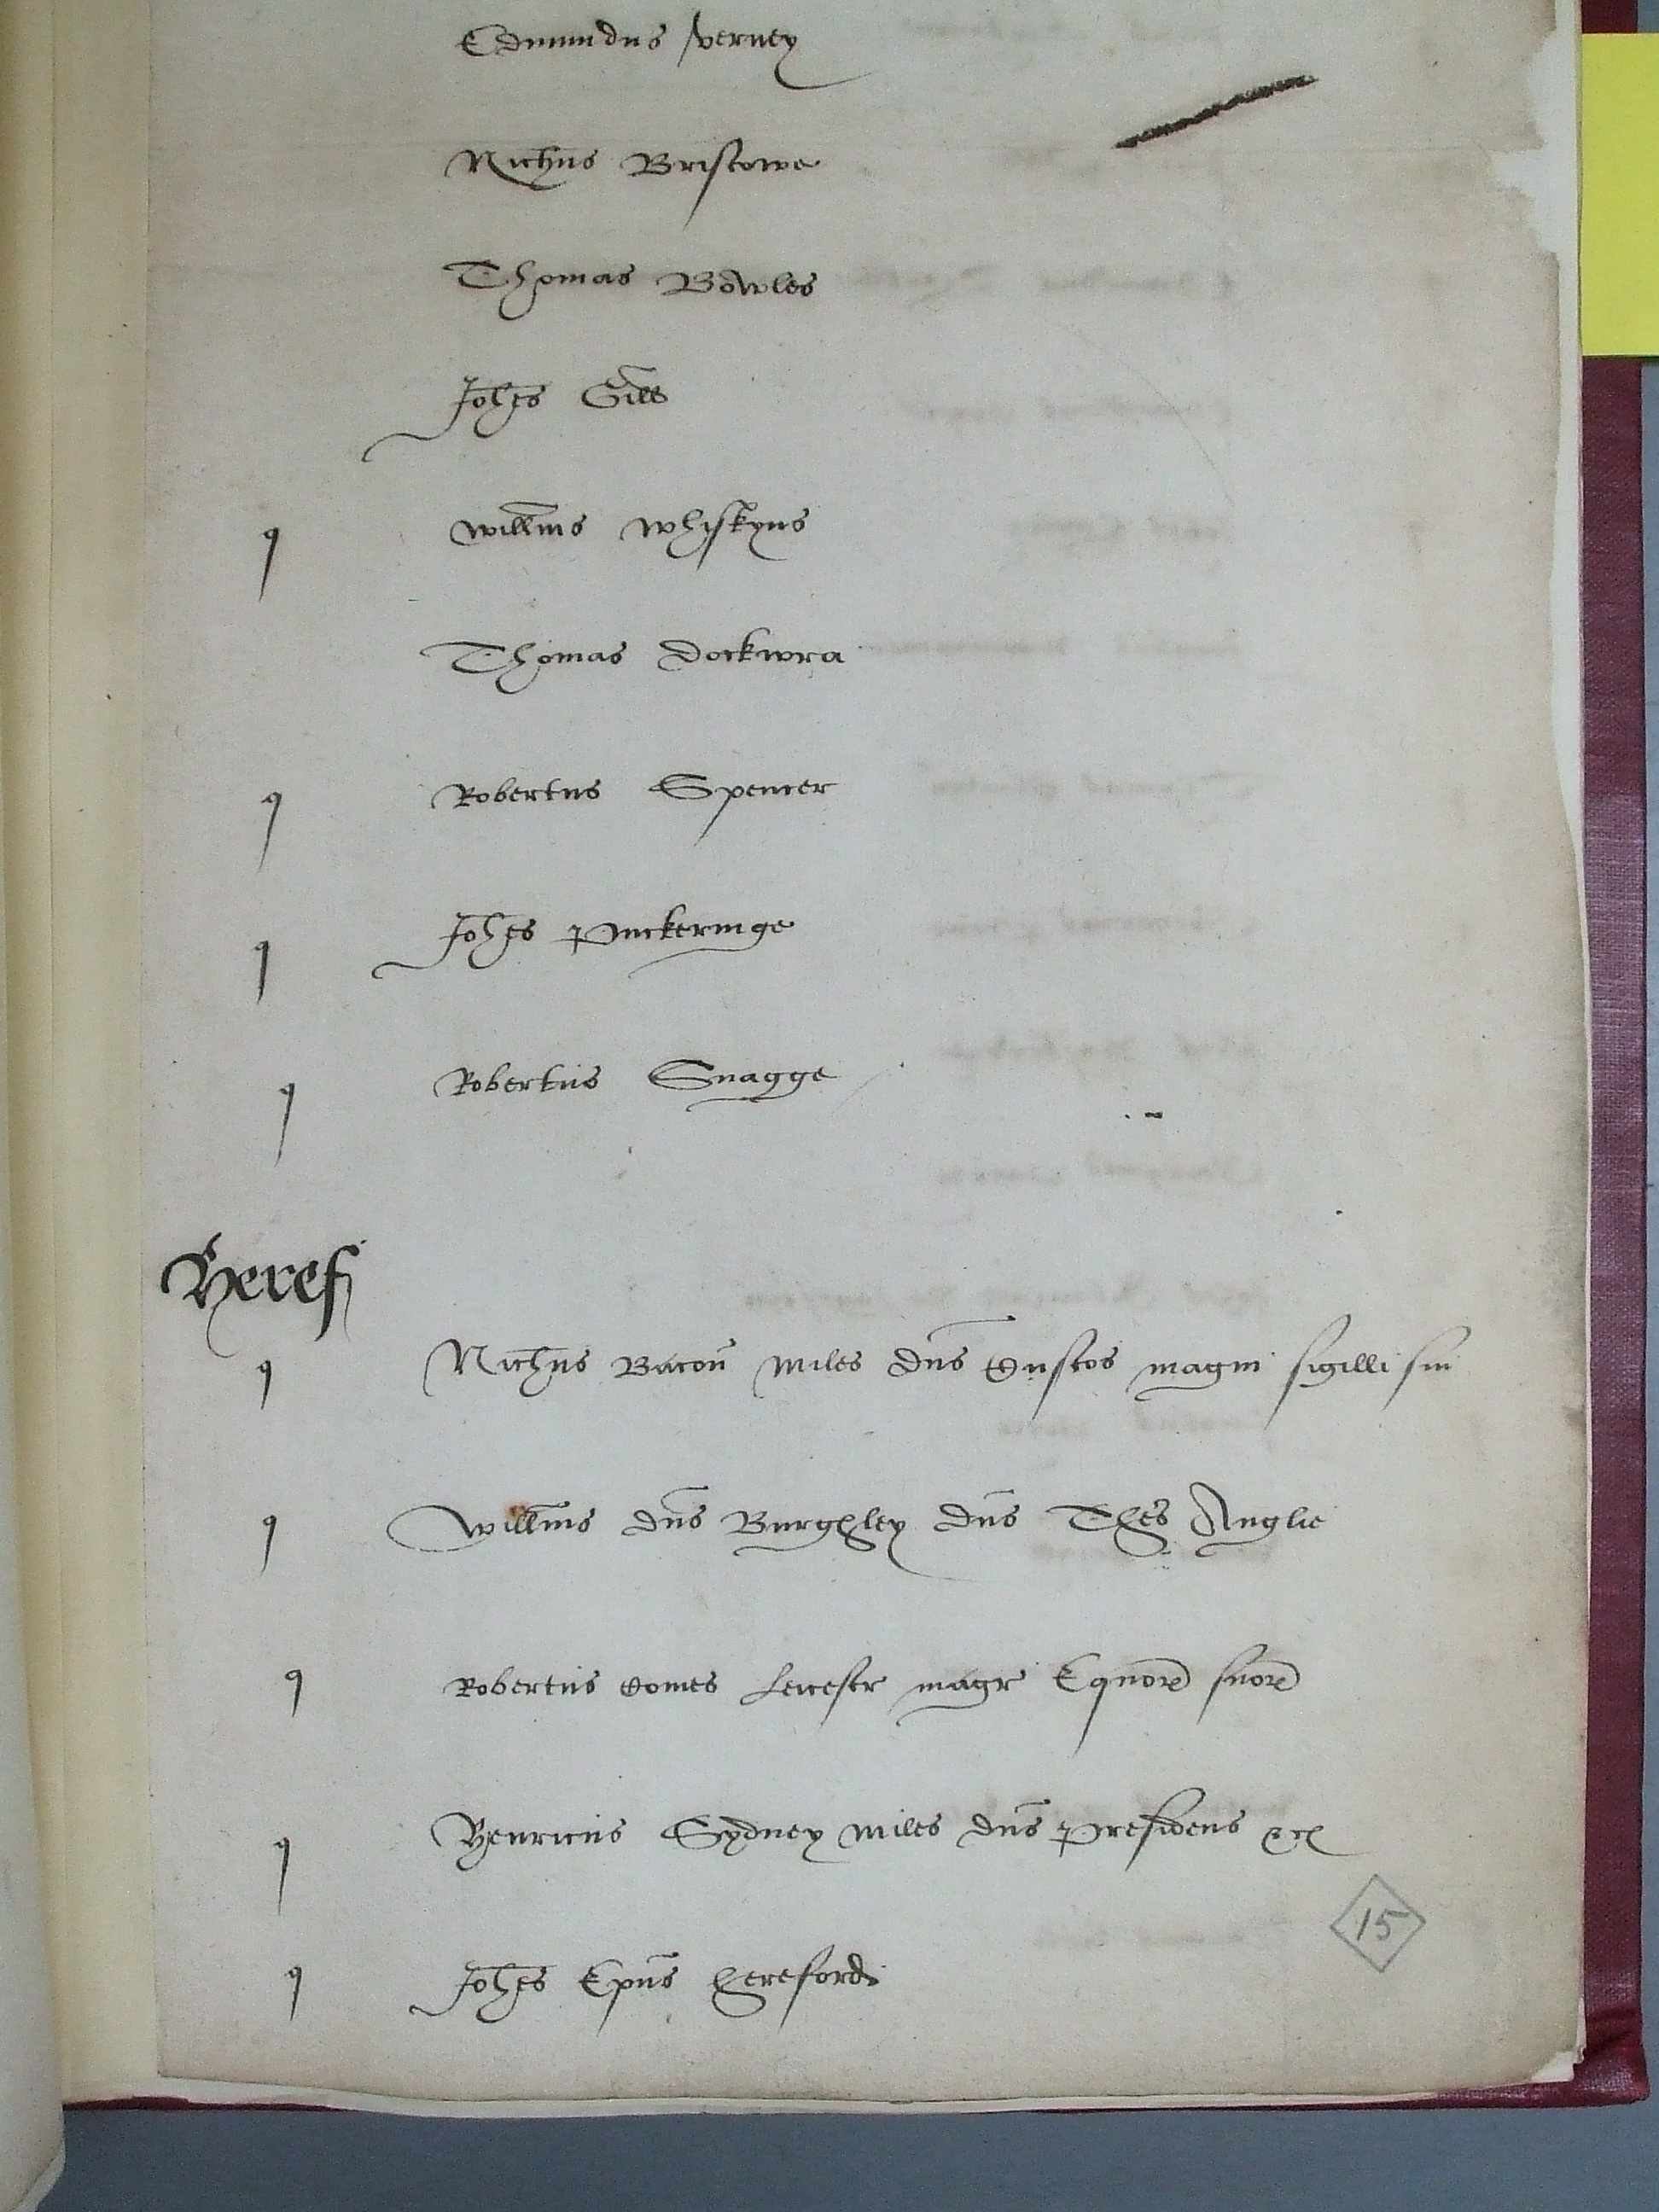 Edmundus verney
Nichūs Bristowe
Thomas Bowles
Johēs Gill
willms̄ whiskyns
q
Thomas dockwra
Robertus Spencer
q
Johēs Puckeringe
q
Robertus Snagge
q
Heref
q Nichūs Bacoñ miles dn̄s Custos magni sigilli sui
q willm̄s dn̄s Burghley dn̄s Thes Anglie
q Robertus Comes Leicestr magr Equor suor
q Henricus Sydney miles dn̄s Presidens &c
15
q Johēs Ep̄us hereford